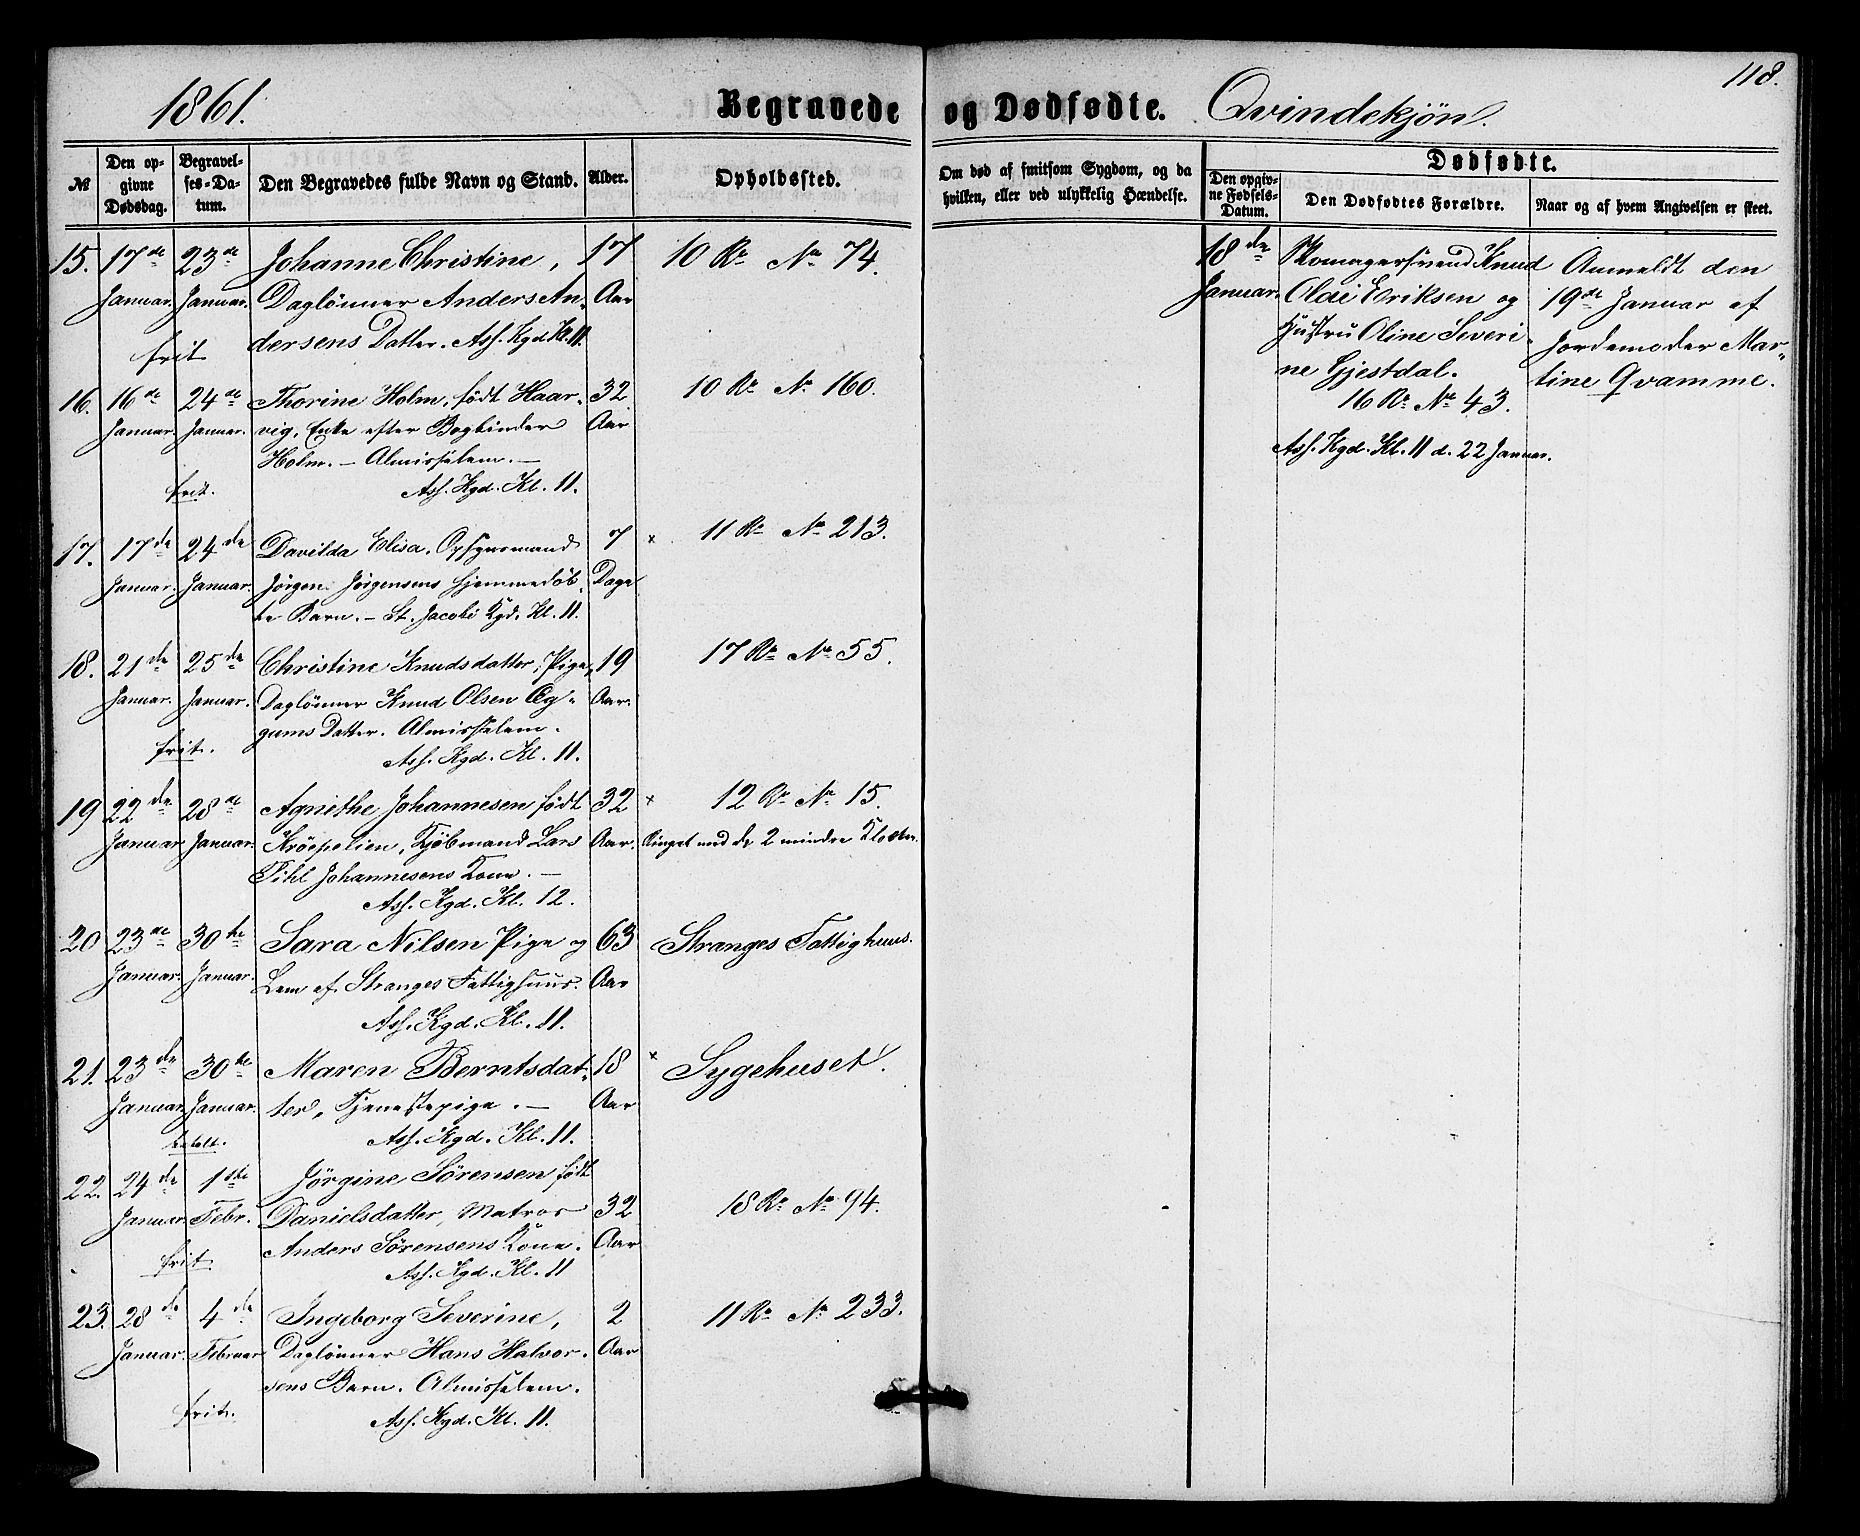 118.
1861. Begravede og Dødfødte. Qvindekjøn.
№
Den opgivne Dødsdag.
Begravelses-Datum.
Den Begravedes fulde Navn og Stand.
Alder.
Opholdssted.
Om død af smitsom Sygdom, og da hvilken, eller ved ulykkelig Hændelse.
Dødfødte.
Den opgivne Fødsels-Datum.
Den Dødfødtes Forældre.
Naar og af hvem Angivelsen er skeet.
15. 17de 23de Johanne Christine, 17 10 R. No 74.
Januar. Januar. Daglönner Anders An- Aar
dersens Datter. Ass. Kgd Kl. 11.
frit
16. 16de 24de Thorine Holm, födt Haar- 32 10 R. No 160.
Januar. Januar. vig, Enke efter Bogbinder Aar
Holm. – Almisselem. –
frit. Ass. Kgd. Kl. 11.
17. 17de 24de Davilda Elisa. Opsynsmand 7 x 11 R. No 213.
Januar. Januar. Jörgen Jörgensens hjemmedöb- Dage
te Barn. – St. Jacobi Kgd. Kl. 11.
18. 21de 25de Christine Knudsdatter, Pige, 19 17 R. No 55.
Januar. Januar. Daglönner Knud Olsen Æg- Aar.
gums Datter. Almisselem.
frit. Ass. Kgd. Kl. 11.
19 22de 28de Agnethe Johannesen födt 32 x 12 R. No 15.
Januar Januar. Kröepelien, Kjöbmand Lars Aar. Ringet med de 2 mindre Klokker.
Pihl Johannesens Kone. –
Ass. Kgd. Kl. 12.
20 23de 30te Sara Nilsen Pige og 63 Stranges Fattighuus.
Januar. Januar. Lem af Stranges Fattighuus. Aar
Ass. Kgd. Kl. 11.
21. 23de 30te Maren Berntsdat- 18 x Sygehuset.
Januar Januar. ter, Tjenestepige. – Aar
betalt. Ass. Kgd. Kl. 11.
22. 24de 1ste Jörgine Sörensen födt
Januar Febr. Danielsdatter, Matros 32 18 R. No 94.
Anders Sörensens Kone. Aar
frit Ass. Kgd. Kl. 11
23. 28de 4de Ingeborg Severine, 2 11 R. No 233.
Januar. Februar Daglönner Hans Halvor- Aar
sens Barn. Almisselem.
frit. Ass. Kgd. Kl. 11.
18de Skomagersvend Knud Anmeldt den
Januar. Olai Eriksen og 19de Januar af
Hustru Oline Severi- Jordemoder Mar-
ne Gjestdal. tine Qvamme.
16 R. No 43.
Ass. Kgd. Kl. 11 d. 22 Januar.